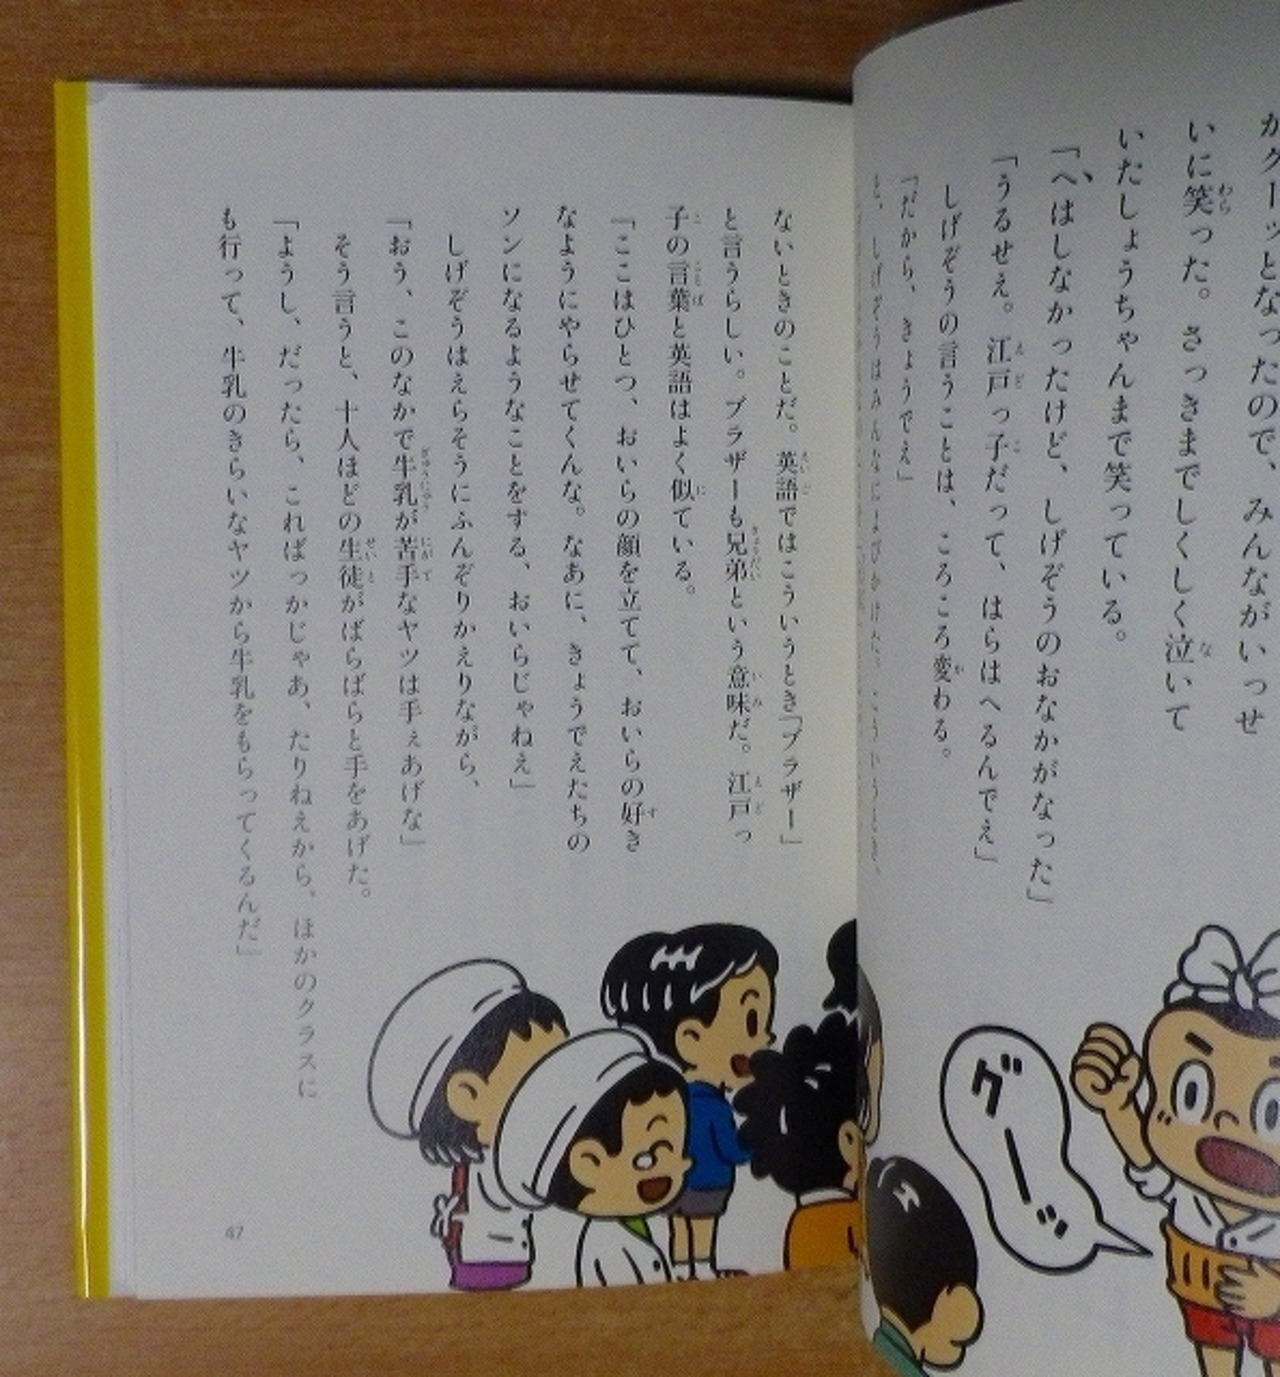 がグーッとなったので、みんながいっせ
いに笑った。さっきまでしくしく泣いて
いたしょうちゃんまで笑っている。
「へはしなかったけど、しげぞうのおなかがなった」
「うるせえ。江戸っ子だって、はらはへるんでぇ」
しげぞうの言うことは、ころころ変わる。
「だから、きょうでえ」
と、しげぞうはみんなによびかけた。こういうとき
ないときのことだ。英語ではこういうとき「ブラザー」
と言うらしい。ブラザーも兄弟という意味だ。江戸っ
子の言葉と英語はよく似ている。
「ここはひとつ、おいらの顔を立てて、おいらの好き
なようにやらせてくんな。なあに、きょうでえたちの
ソンになるようなことをする、おいらじゃねえ」
しげぞうはえらそうにふんぞりかえりながら、
「おう、このなかで牛乳が苦手なヤツは手ぇあげな」
そう言うと、十人ほどの生徒がばらばらと手をあげた。
「ようし、だったら、これぽっかじゃあ、たりねえから、ほかのクラスに
も行って、牛乳のきらいなヤツから牛乳をもらってくるんだ」
グーッ
47